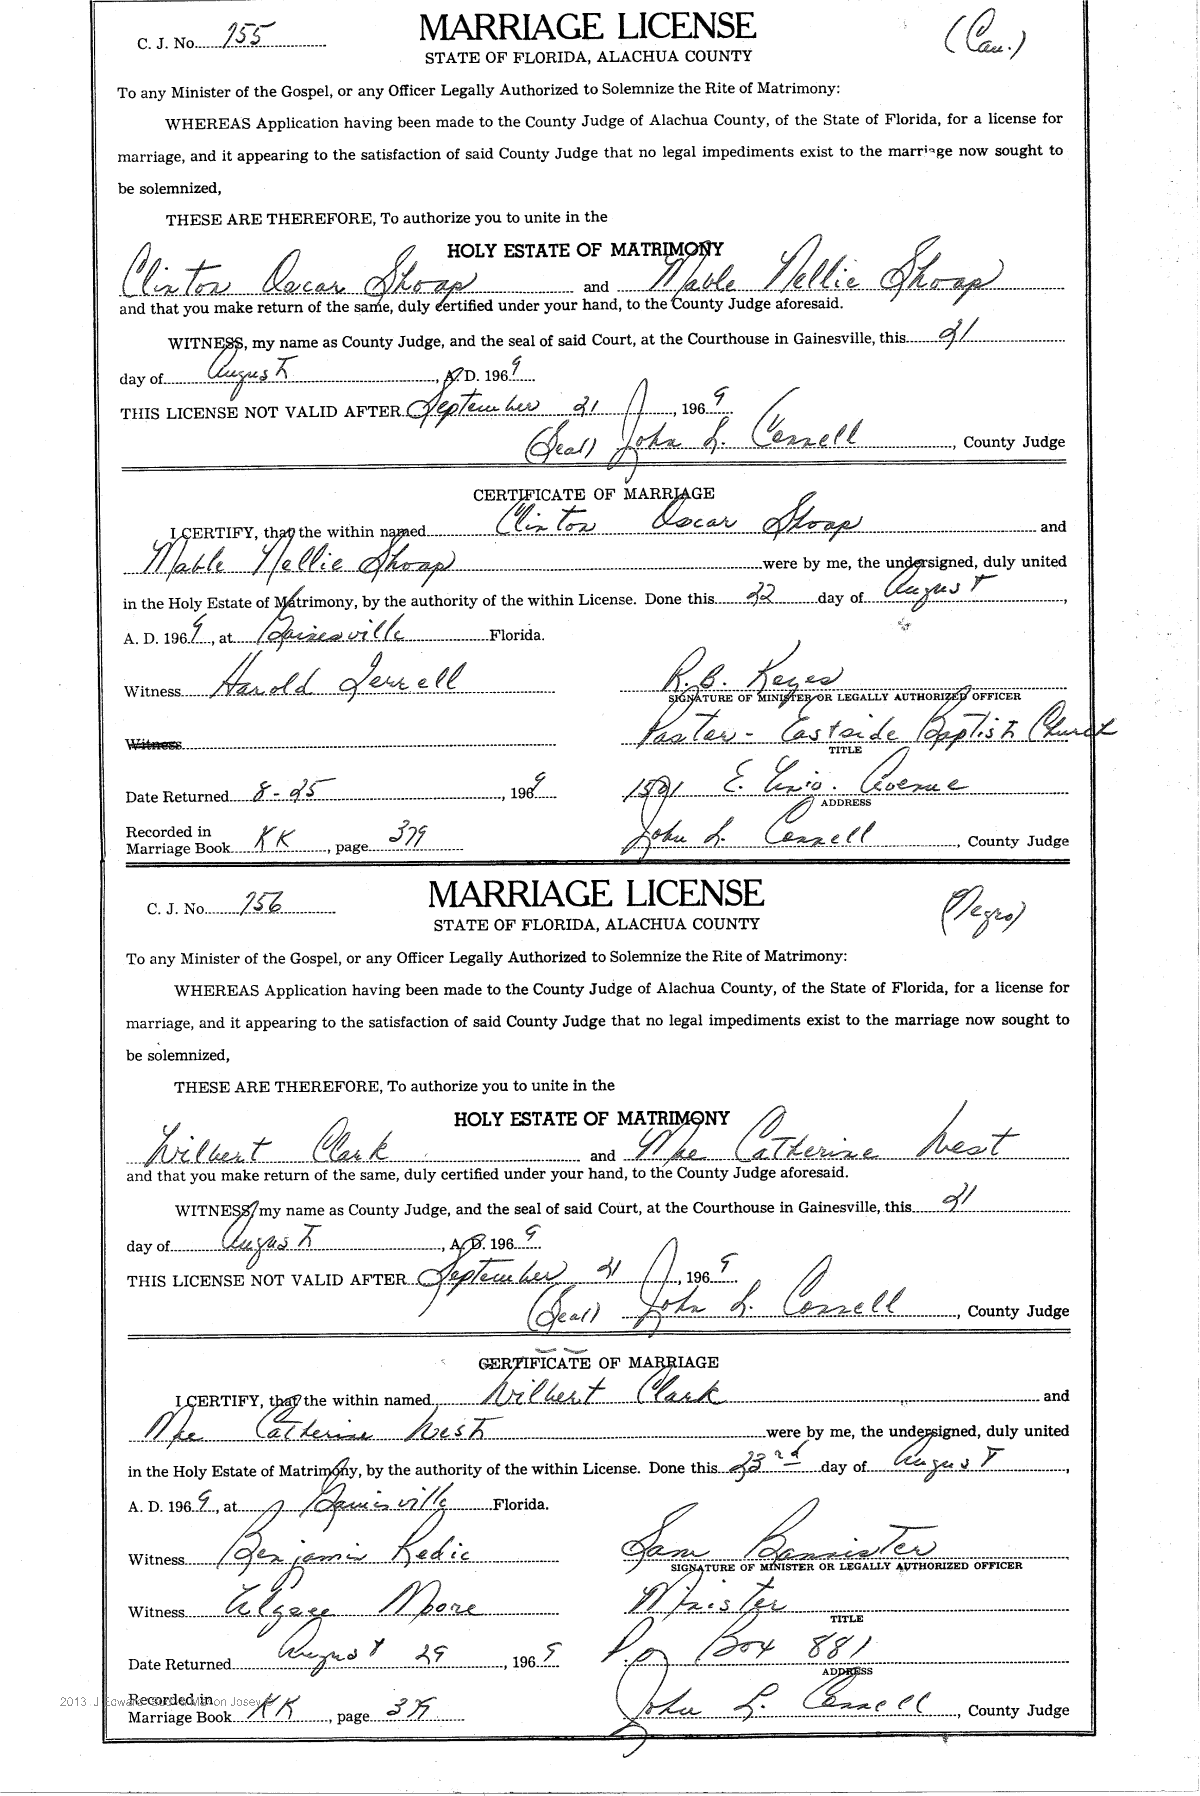 C. J. No. 755
MARRIAGE LICENSE
(Cau.)
STATE OF FLORIDA, ALACHUA COUNTY
To any Minister of the Gospel, or any Officer Legally Authorized to Solemnize the Rite of Matrimony:
WHEREAS Application having been made to the County Judge of Alachua County, of the State of Florida, for a license for
marriage, and it appearing to the satisfaction of said County Judge that no legal impediments exist to the marriage now sought to
be solemnized,
THESE ARE THEREFORE, To authorize you to unite in the
HOLY ESTATE OF MATRIMONY
Clinton Oscar Shoap and Mable Nellie Shoap
and that you make return of the same, duly certified under your hand, to the County Judge aforesaid.
WITNESS, my name as County Judge, and the seal of said Court, at the Courthouse in Gainesville, this 21
day of August, A.D. 1969
THIS LICENSE NOT VALID AFTER September 21, 1969
(Seal) John L. Connell, County Judge
CERTIFICATE OF MARRIAGE
I CERTIFY, that the within named Clinton Oscar Shoap and
Mable Nellie Shoap were by me, the undersigned, duly united
in the Holy Estate of Matrimony, by the authority of the within License. Done this 22 day of August,
A. D. 1969, at Gainesville Florida.
Witness Harold Terrell R.B. Keyes
SIGNATURE OF MINISTER OR LEGALLY AUTHORIZED OFFICER
Witness Pastor - Eastside Baptist Church
TITLE
Date Returned 8-25, 1969 1521 E. Univ. Avenue
ADDRESS
Recorded in
Marriage Book KK, page 379 John L. Connell, County Judge
C. J. No. 756
MARRIAGE LICENSE
(Negro)
STATE OF FLORIDA, ALACHUA COUNTY
To any Minister of the Gospel, or any Officer Legally Authorized to Solemnize the Rite of Matrimony:
WHEREAS Application having been made to the County Judge of Alachua County, of the State of Florida, for a license for
marriage, and it appearing to the satisfaction of said County Judge that no legal impediments exist to the marriage now sought to
be solemnized,
THESE ARE THEREFORE, To authorize you to unite in the
HOLY ESTATE OF MATRIMONY
Wilbert Clark and Mae Catherine West
and that you make return of the same, duly certified under your hand, to the County Judge aforesaid.
WITNESS, my name as County Judge, and the seal of said Court, at the Courthouse in Gainesville, this 21
day of August, A. D. 1969
THIS LICENSE NOT VALID AFTER September 21, 1969
(Seal) John L. Connell, County Judge
CERTIFICATE OF MARRIAGE
I CERTIFY, that the within named Wilbert Clark and
Mae Catherine West were by me, the undersigned, duly united
in the Holy Estate of Matrimony, by the authority of the within License. Done this 23rd day of August,
A. D. 1969, at Gainesville Florida.
Witness Benjamin Redic Sam Bannister
SIGNATURE OF MINISTER OR LEGALLY AUTHORIZED OFFICER
Witness Moore Minister
TITLE
Date Returned August 29, 1969 P.O Box 881
ADDRESS
Recorded in
Marriage Book KK, page 379 John L. Connell, County Judge
2013 Josey